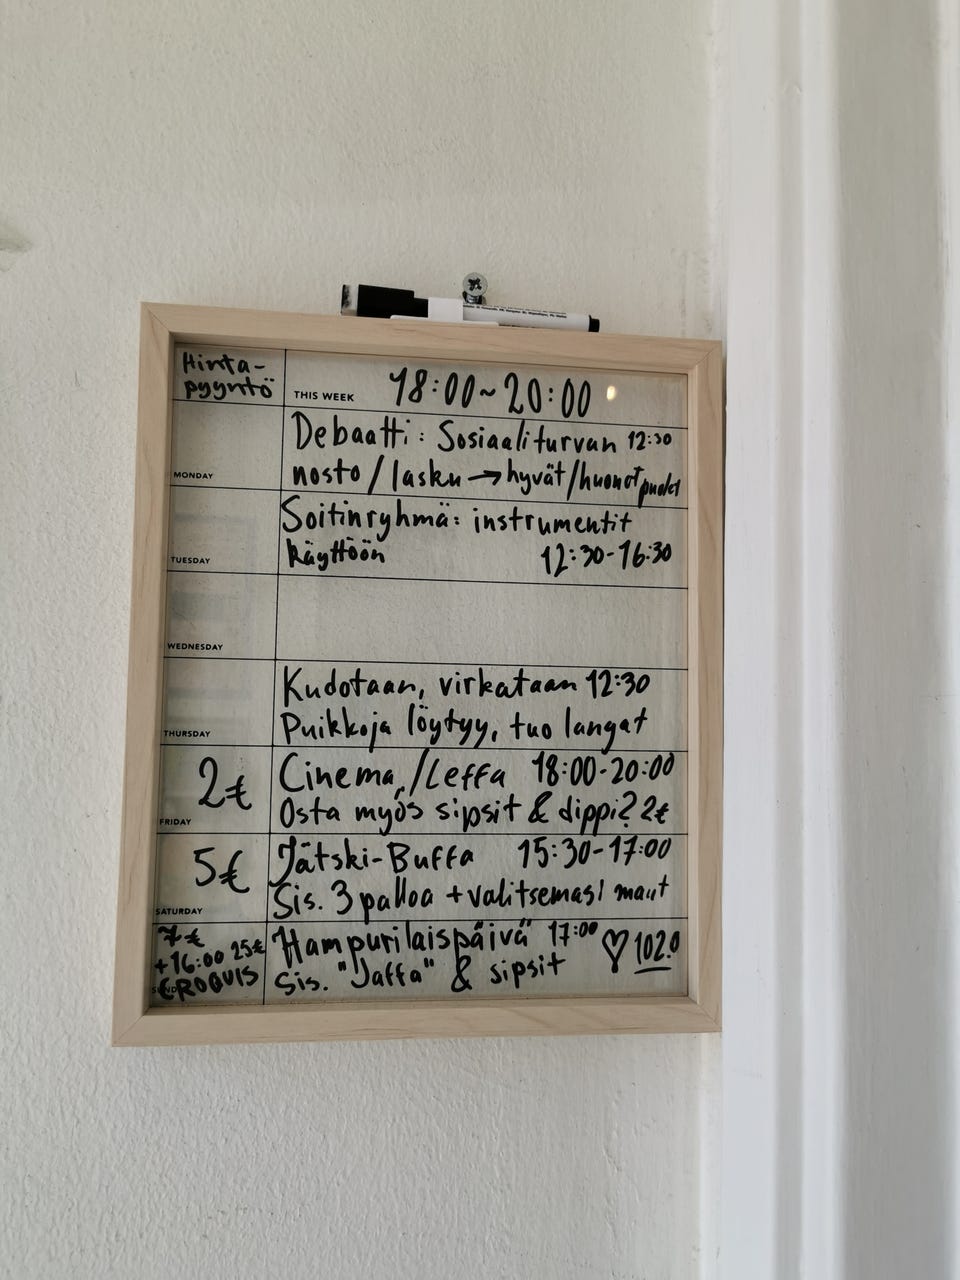 Hinta-
pyyntö
THIS WEEK 18:00~20:00
Debaatti: Sosiaaliturvan 12:30
MONDAY nosto/lasku → hyvät/huonot puolet
Soitinryhmä: instrumentit
TUESDAY käyttöön 12:30-16:30
WEDNESDAY
Kudotaan, virkataan 12:30
THURSDAY Puikkoja löytyy, tuo langat
2€ Cinema/Leffa 18:00-20:00
FRIDAY Osta myös sipsit & dippi? 2€
5€ Jätski-Buffa 15:30-17:00
SATURDAY Sis. 3 palloa + valitsemasi maut
7€ Hampurilaispäivä 17:00 ♡ 102.0
+16:00 25€ Sis. "Jaffa" & sipsit
CROQUIS